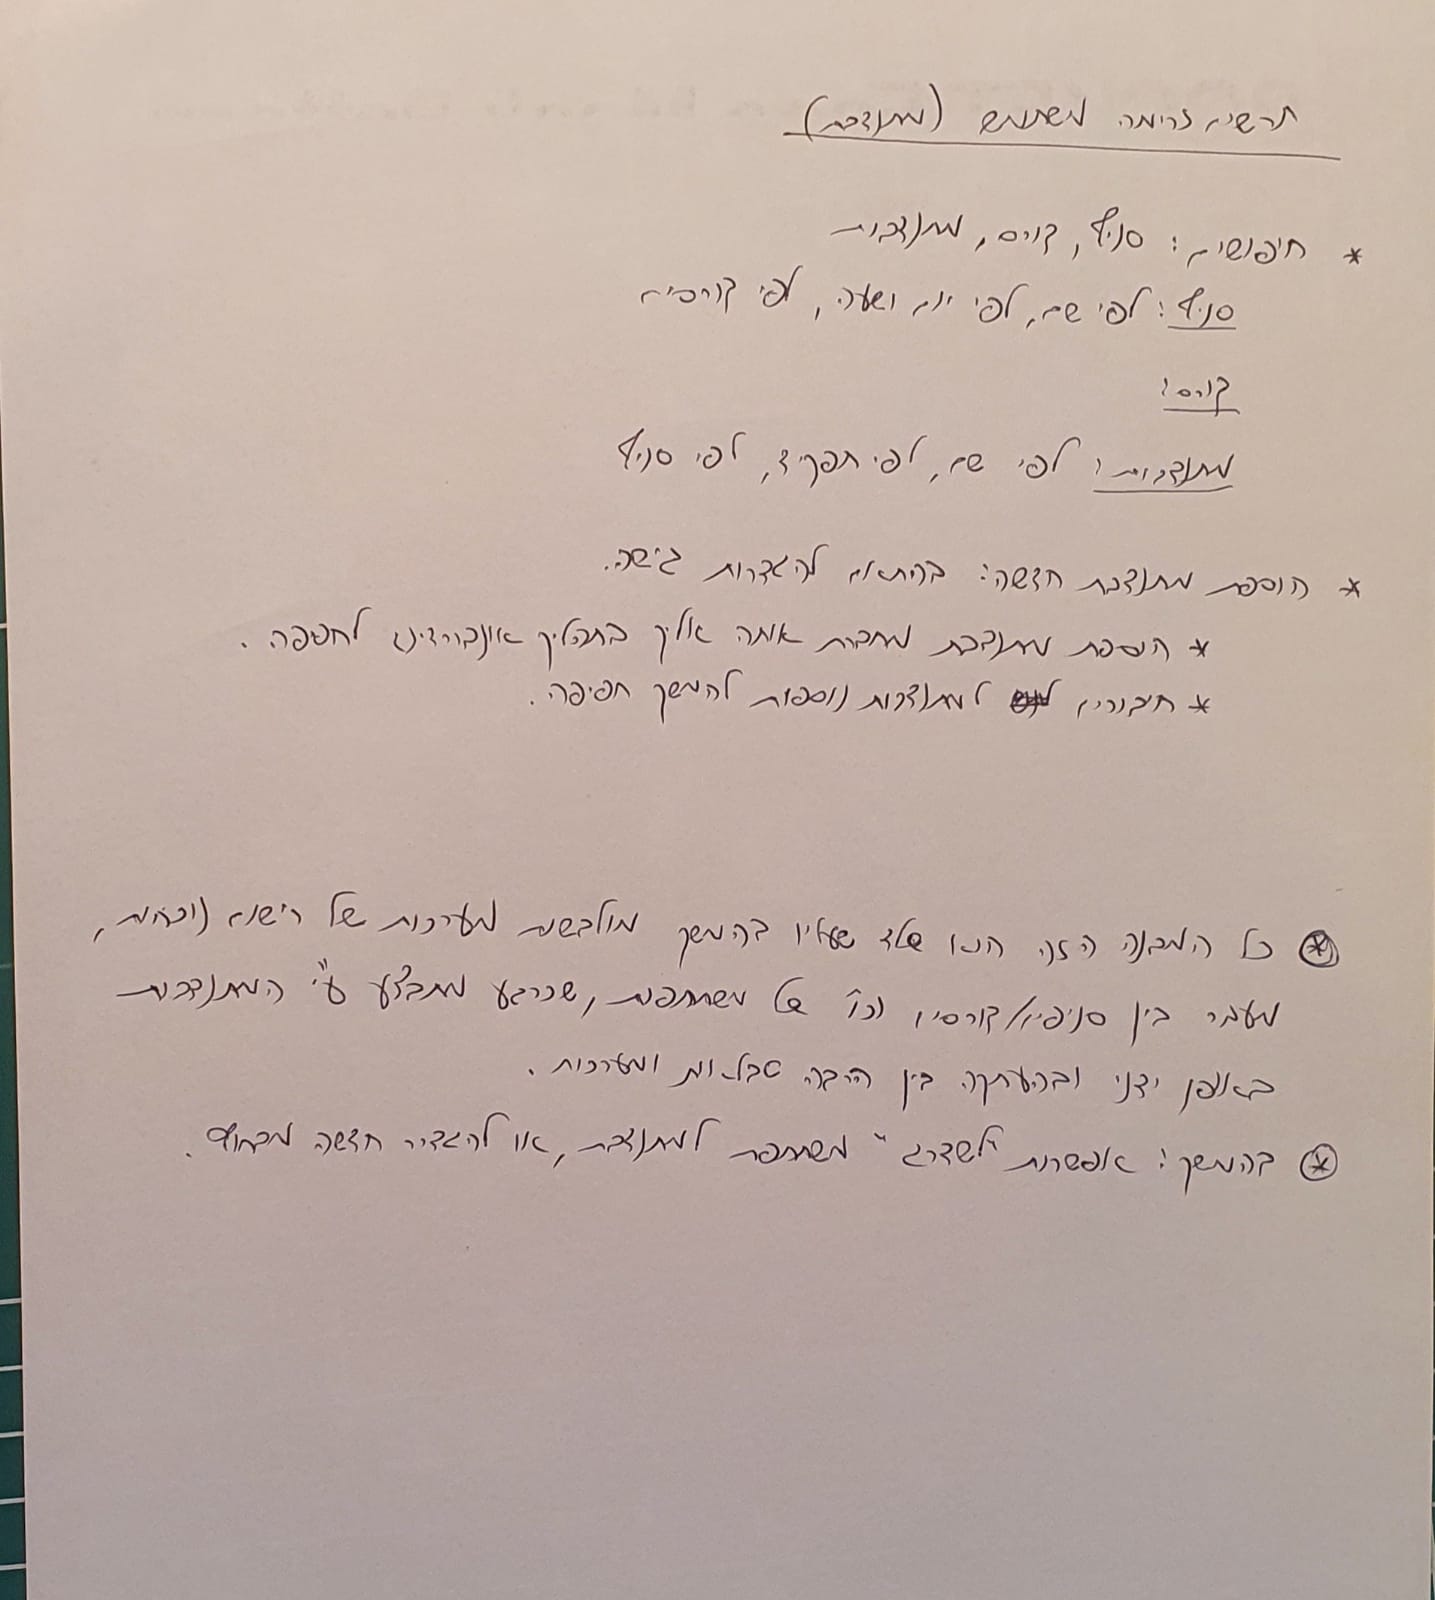 תרשים זרימה משתמש (מתנדבת)
* חיפושים: סניף, קורס, מתנדבות
סניף: לפי שם, לפי יום ושעה, לפי קורסים
קורס:
מתנדבות: לפי שם, לפי תפקיד, לפי סניף
* הוספת מתנדבת חדשה: בהתאם להגדרות גישה.
* הוספת מתנדבת מחברת אותה אליך בתהליך אונבורדינג לחפיפה.
* חיבורים למתנדבות נוספות להמשך חפיפה.
* כל המבנה הזה הוא שלד שעליו בהמשך מולבשת מערכות של רישום נוכחות,
מעבר בין סניפים/קורסים וכו' של משתתפות, שכרגע מתבצע ע"י המתנדבות
באופן ידני ובהעתקה בין הרבה טבלאות ומערכות.
* בהמשך: אפשרות "לשדרג" משתתפת למתנדבת, או להגדיר חדשה מבחוץ.